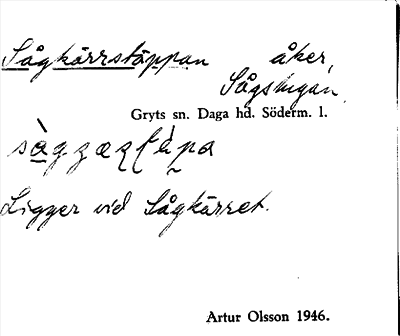 Sågkärrstäppan åker,
Sågstugan,
Gryts sn. Daga hd. Söderm. l.
Ligger vid Sågkärret.
Artur Olsson 1946.